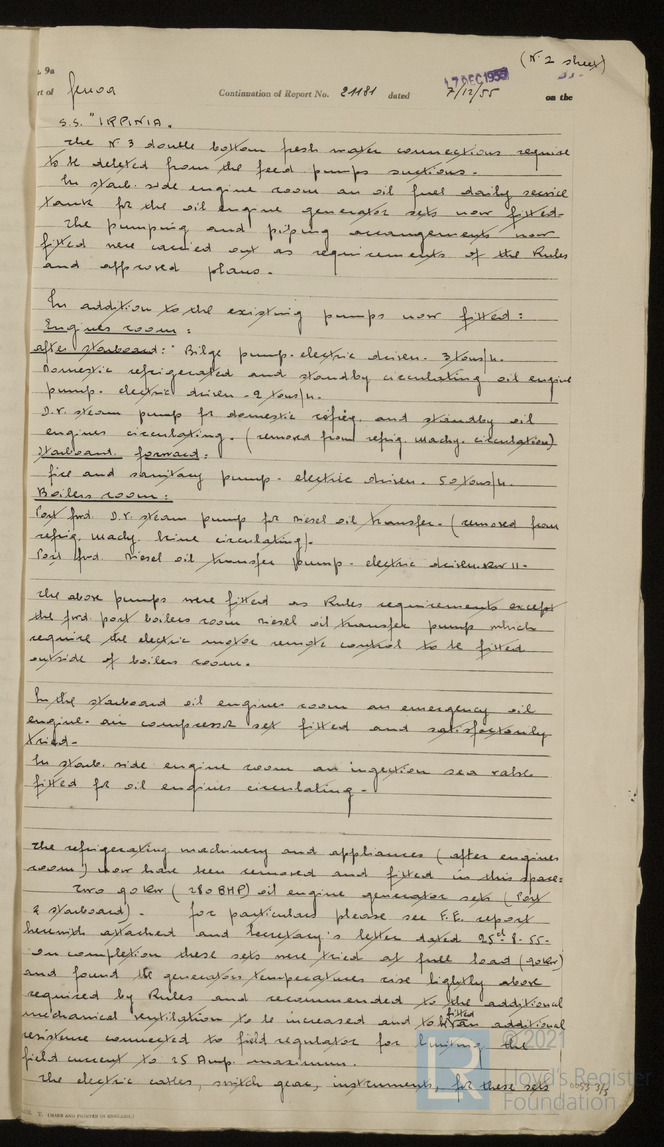 (N. 2 sheet)
17 DEC 1955
9a
rt of Genoa Continuation of Report No. 21181 dated 7/12/55 on the
S.S. "IRPINIA.
The N 3 double bottom fresh water connections require
to be deleted from the feed pumps suctions.
In starb. side engine room an oil fuel daily service
tank for the oil engine generator sets now fitted.
The pumping and piping arrangements now
fitted were carried out as requirements of the Rules
and approved plans.
In addition to the existing pumps now fitted:
Engines room:
after starboard: Bilge pump. electric driven. 3 tons/h.
Domestic refrigerated and standby circulating oil engine
pump. electric driven. 2 tons/h.
D.V. steam pump for domestic refrig. and standby oil
engines circulating. (removed from refrig. machy. circulation)
Starboard forward:
fire and sanitary pump. electric driven. 50 tons/h.
Boilers room:
Port fwd. D.V. steam pump for Diesel oil transfer. (removed from
refrig. machy. brine circulating).
Port fwd. Diesel oil transfer pump. electric driven. KW 11.
The above pumps were fitted as Rules requirements except
the fwd port boilers room Diesel oil transfer pump which
require the electric motor remote control to be fitted
outside of boilers room.
In the starboard oil engines room an emergency oil
engine. air compressor set fitted and satisfactorily
tried.
In starb. side engine room an ingection sea valve
fitted for oil engines circulating.
The refrigerating machinery and appliances (after engines
room) now have been removed and fitted in this space:
Two 90 KW (280 BHP) oil engine generator sets (Port
& starboard). For particulars please see F.E. report
herewith attached and Secretary's letter dated 25th 8-55-
On completion these sets were tried at full load (90KW)
and found the generators temperatures rise lightly above
required by Rules and recommended to the additional
mechanical ventilation to be increased and to be fitted an additional
resistence connected to field regulator for limiting the
field current to 25 Amp. maximum.
The electric cables, switch gear, instruments, for these sets
0053 3/3
© 2021
LR
Lloyd's Register
Foundation
(MADE AND PRINTED IN ENGLAND.)